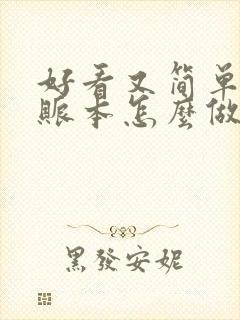 好看又简单
賬本怎麼做
黑發安妮